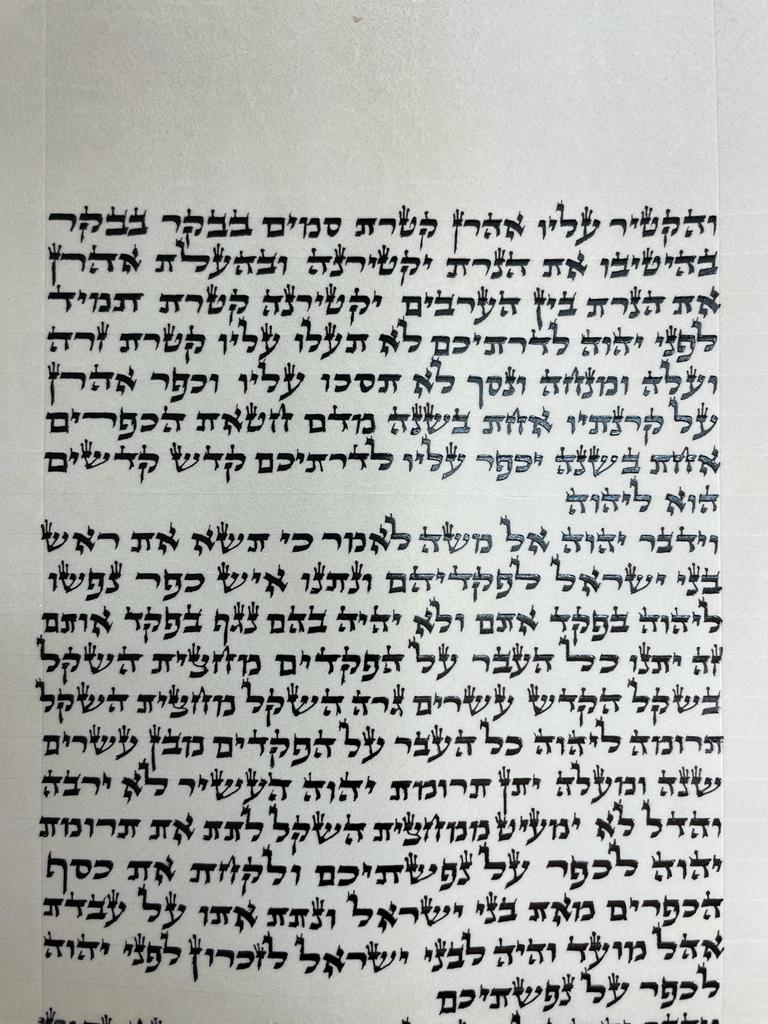 והקטיר עליו אהרן קטרת סמים בבקר בבקר
בהיטיבו את הנרת יקטירנה ובהעלת אהרן
את הנרת בין הערבים יקטירנה קטרת תמיד
לפני יהוה לדרתיכם לא תעלו עליו קטרת זרה
ועלה ומנחה ונסך לא תסכו עליו וכפר אהרן
על קרנתיו אחת בשנה מדם חטאת הכפרים
אחת בשנה יכפר עליו לדרתיכם קדש קדשים
הוא ליהוה
וידבר יהוה אל משה לאמר כי תשא את ראש
בני ישראל לפקדיהם ונתנו איש כפר נפשו
ליהוה בפקד אתם ולא יהיה בהם נגף בפקד אותם
זה יתנו כל העבר על הפקדים מחצית השקל
בשקל הקדש עשרים גרה השקל מחצית השקל
תרומה ליהוה כל העבר על הפקדים מבן עשרים
שנה ומעלה יתן תרומת יהוה העשיר לא ירבה
והדל לא ימעיט ממחצית השקל לתת את תרומת
יהוה לכפר על נפשתיכם ולקחת את כסף
הכפרים מאת בני ישראל ונתת אתו על עבדת
אהל מועד והיה לבני ישראל לזכרון לפני יהוה
לכפר על נפשתיכם